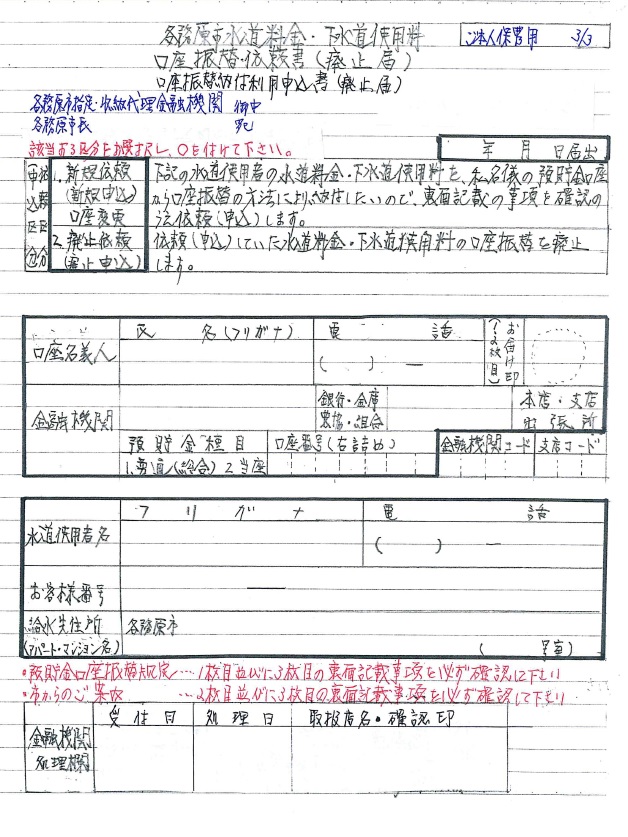 各務原市水道料金・下水道使用料
口座振替依頼書(廃止届)
口座振替納付利用申込書(廃止届)
ご本人保管用 3/3
各務原市指定・収納代理金融機関 御中
各務原市長 宛
該当する区分を選択し、○を付けて下さい。
年 月 日届出
申込区分
依頼区分
1.新規依頼
(新規申込)
口座変更
2.廃止依頼
(廃止申込)
下記の水道使用者の水道料金・下水道使用料を、私名儀の預貯金口座
から口座振替の方法により納付したいので、裏面記載の事項を確認の
う法依頼(申込)します。
依頼(申込)していた水道料金・下水道使用料の口座振替を廃止
します。
口座名義人
氏 名(フリガナ)
電 話
( ) ー
お届け印
(1・2枚目)
金融機関
銀行・金庫
農協・組合
本店・支店
出張所
預貯金種目
1.普通(総合) 2.当座
口座番号(右詰め)
金融機関コード
支店コード
水道使用者名
フリガナ
電 話
( ) ー
お客様番号
ー
給水先住所
(アパート・マンション名)
各務原市
( 号室)
・預貯金口座振替規定…1枚目並びに3枚目の裏面記載事項を必ず確認して下さい
・市からのご案内 …2枚目並びに3枚目の裏面記載事項を必ず確認して下さい
金融機関
処理欄
受付日
処理日
取扱店名・確認印